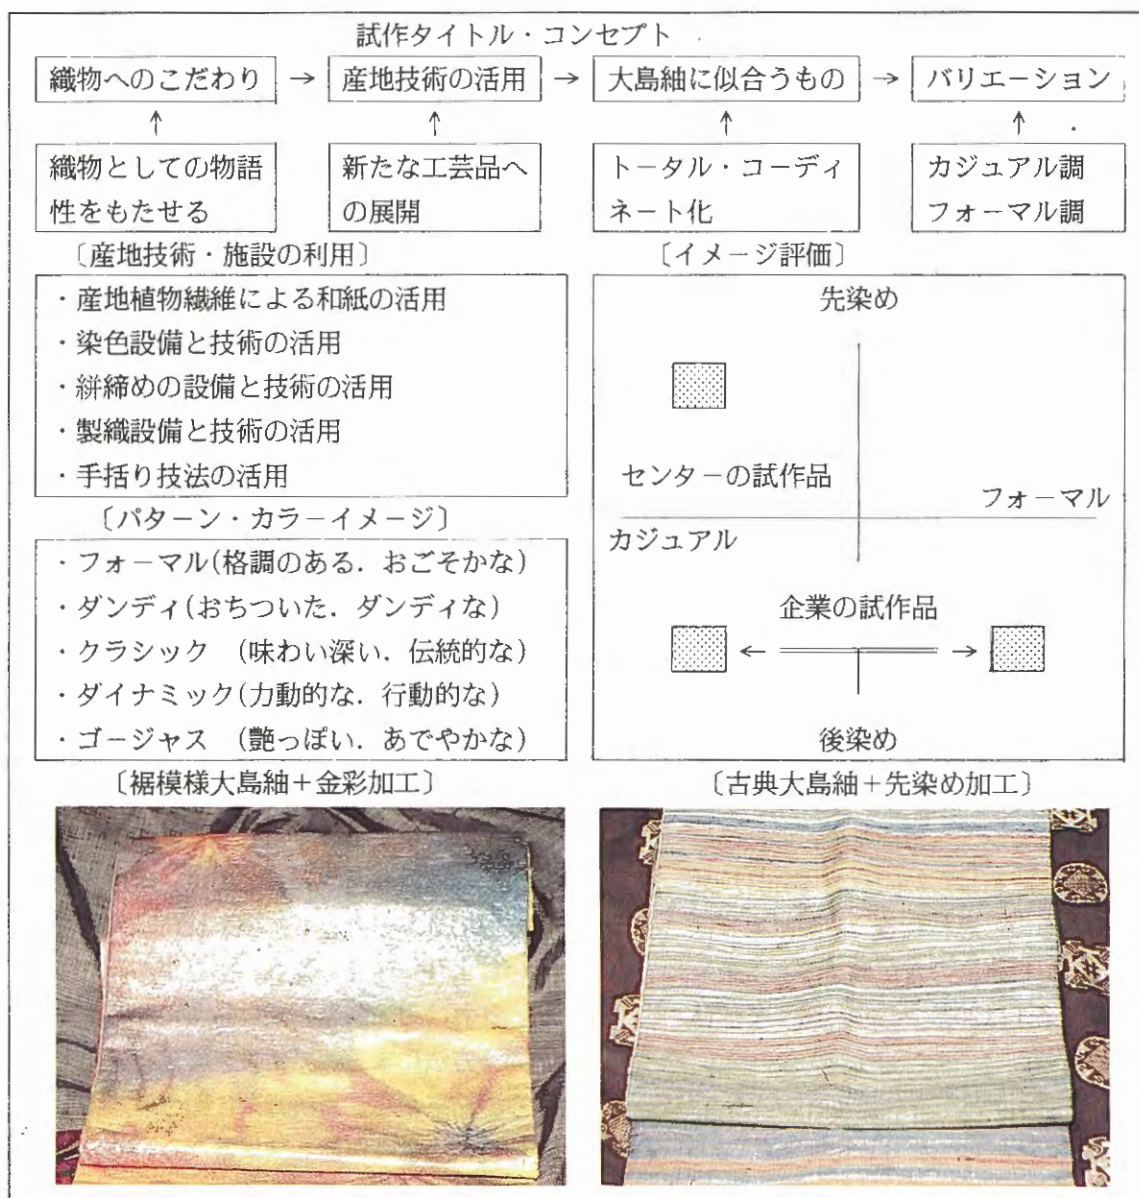 試作タイトル・コンセプト
織物へのこだわり → 産地技術の活用 → 大島紬に似合うもの → バリエーション
↑ ↑ ↑ ↑
織物としての物語 新たな工芸品へ トータル・コーディ カジュアル調
性をもたせる の展開 ネート化 フォーマル調
〔産地技術・施設の利用〕
・産地植物繊維による和紙の活用
・染色設備と技術の活用
・絣締めの設備と技術の活用
・製織設備と技術の活用
・手括り技法の活用
〔パターン・カラーイメージ〕
・フォーマル(格調のある. おごそかな)
・ダンディ(おちついた. ダンディな)
・クラシック (味わい深い. 伝統的な)
・ダイナミック(力動的な. 行動的な)
・ゴージャス (艶っぽい. あでやかな)
〔イメージ評価〕
先染め
センターの試作品
フォーマル
カジュアル
企業の試作品
← →
後染め
〔裾模様大島紬+金彩加工〕
〔古典大島紬+先染め加工〕